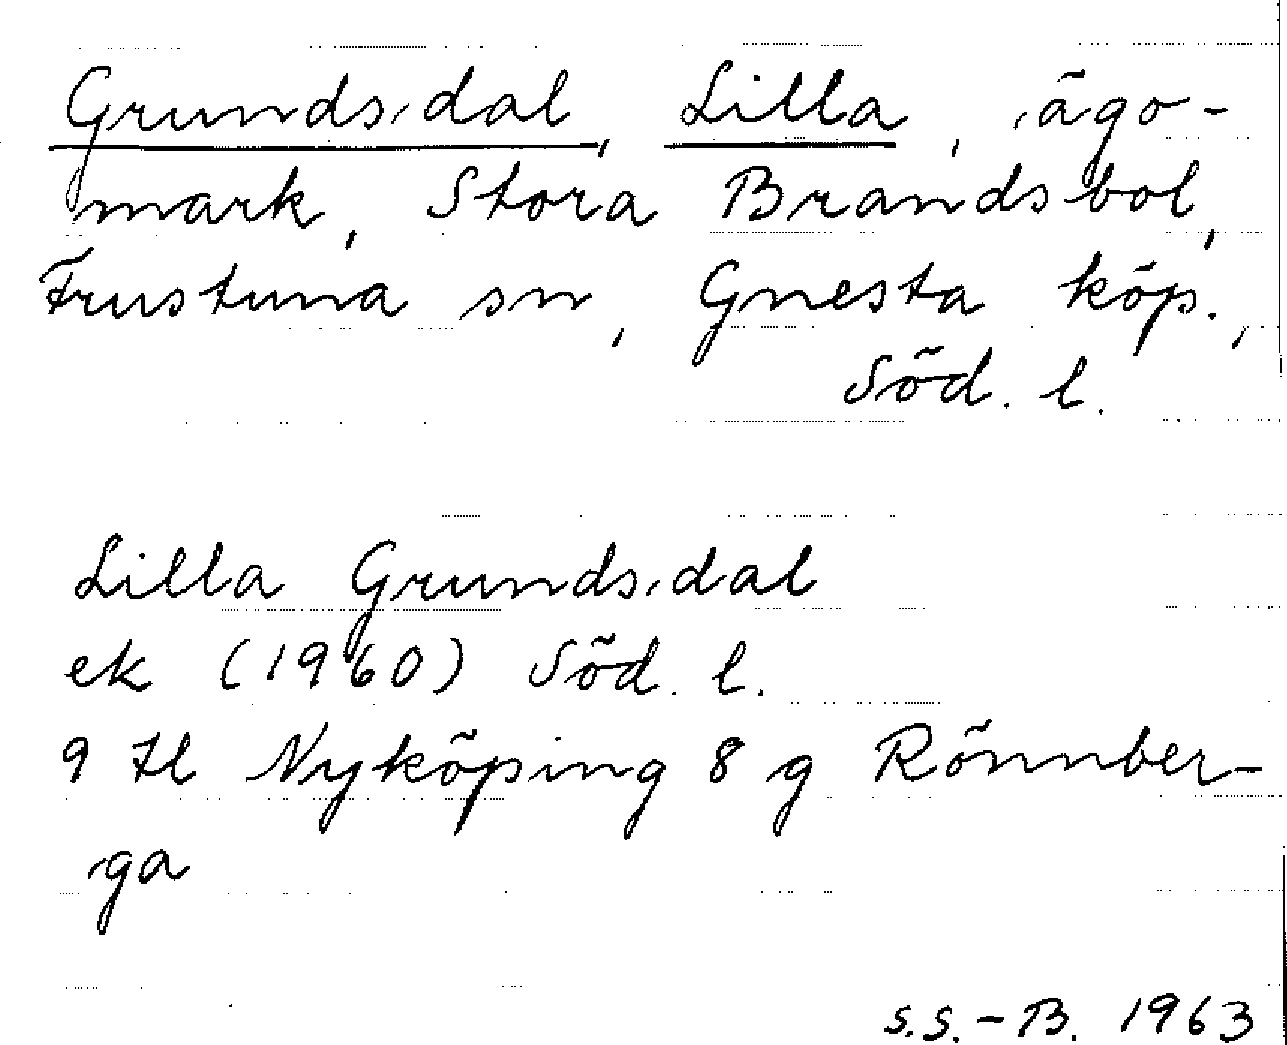 Grundsdal, Lilla, ägo-
mark, Stora Brandsbol,
Frustuna sn, Gnesta köp.,
Söd. l.
Lilla Grundsdal
ek (1960) Söd. l.
9 Hl Nyköping 8 g Rönnber-
ga
S.S.-B. 1963